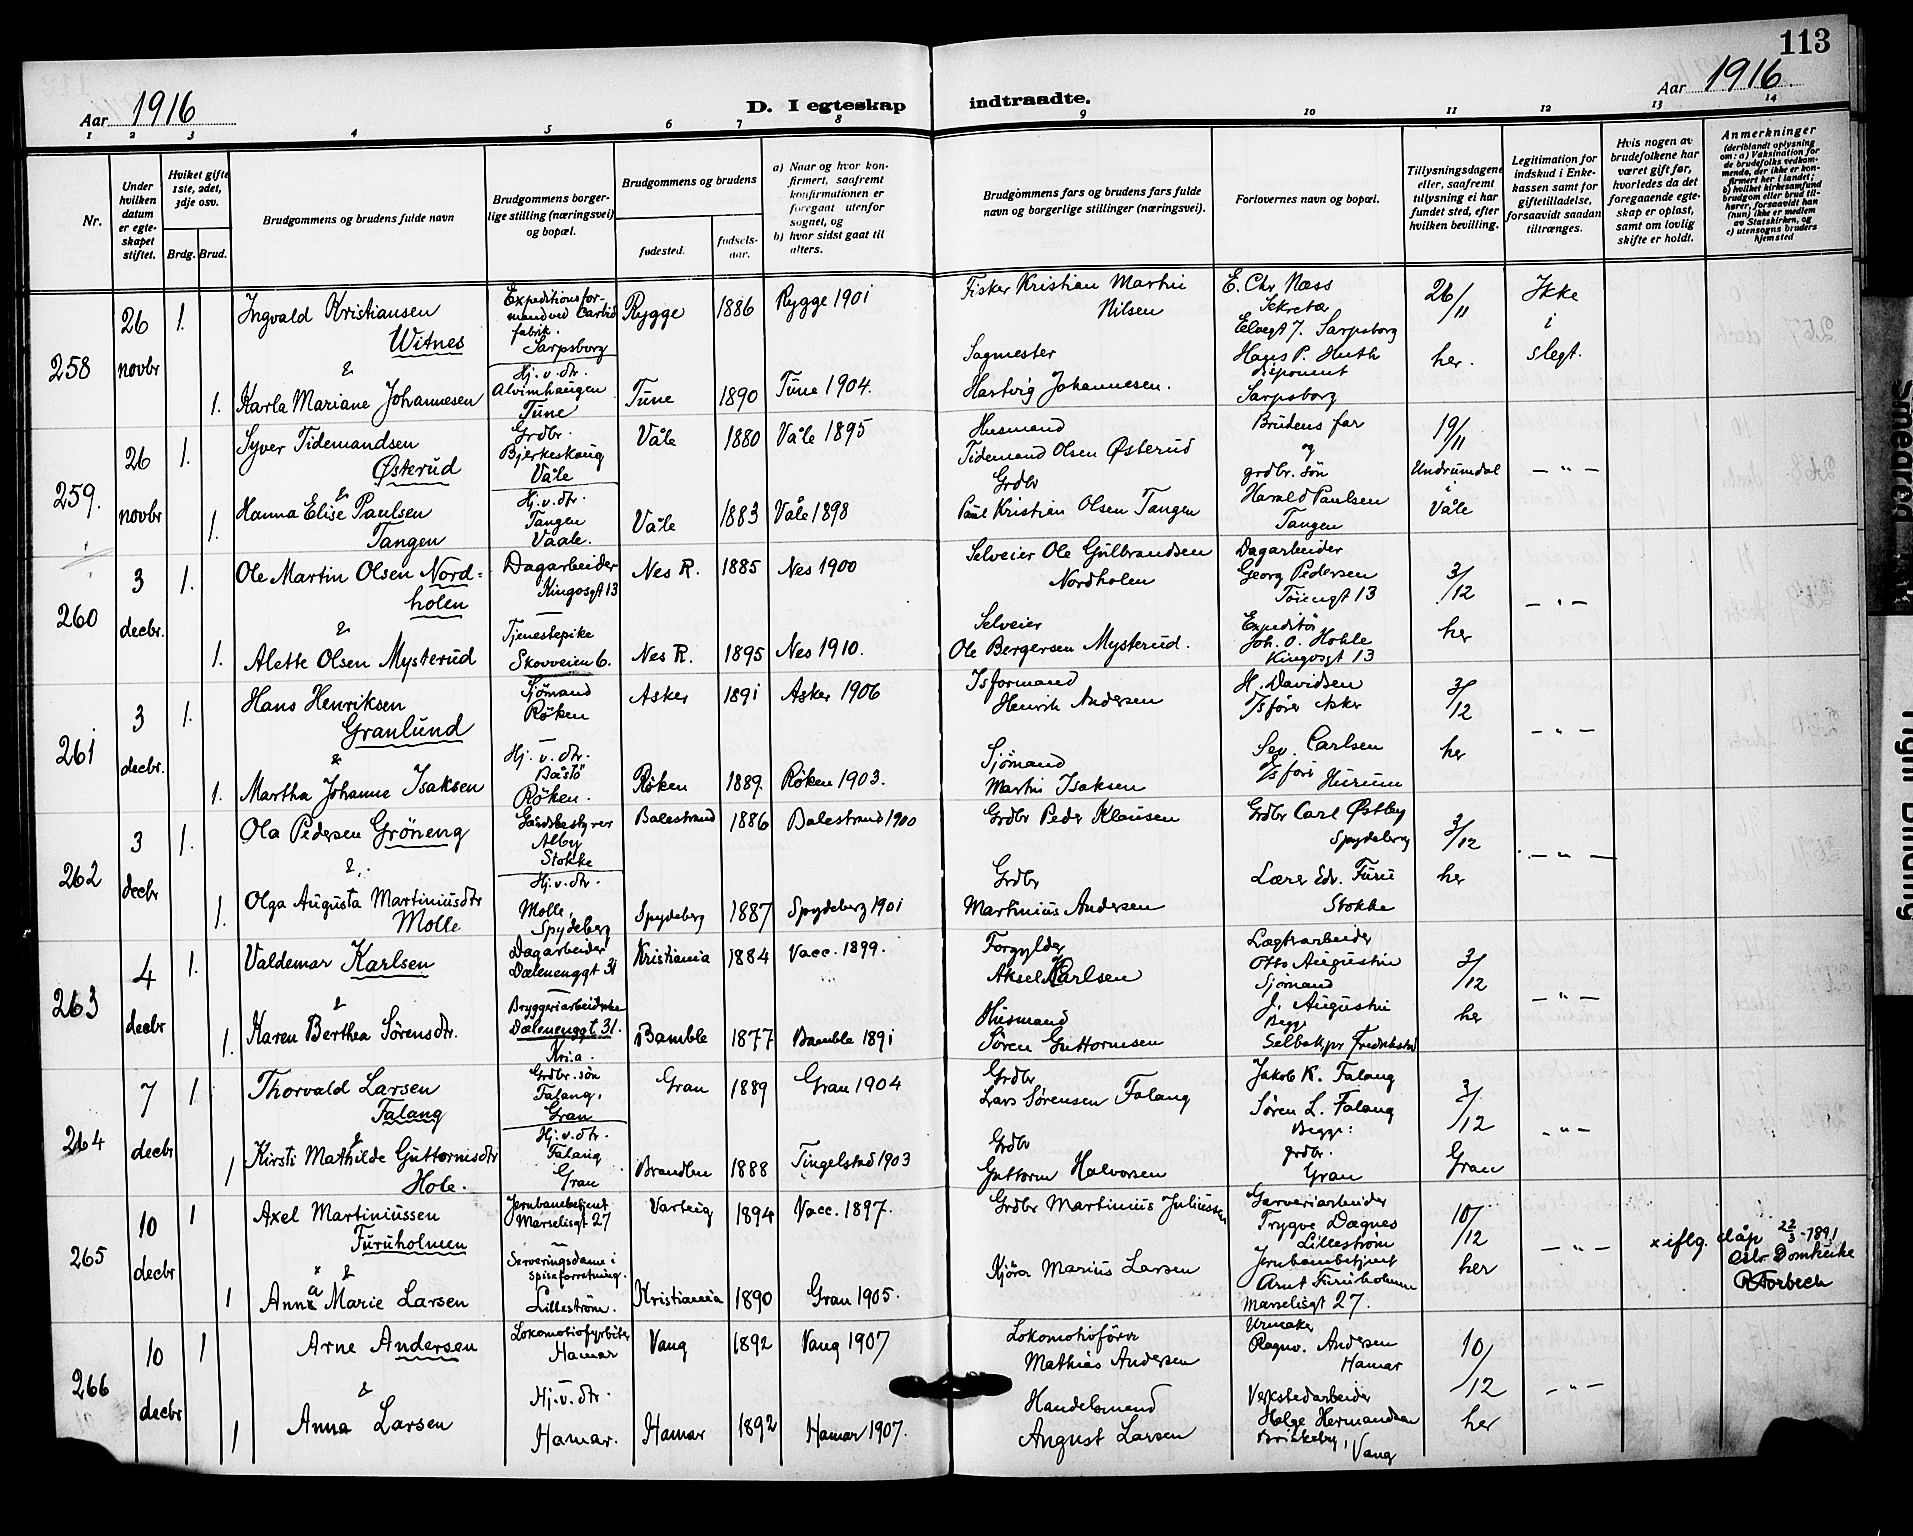 113
Aar 1916
D. I egteskap indtraadte.
Aar 1916
1 2 3 4 5 6 7 8 9 10 11 12 13 14
Nr.
Under hvilken datum er egteskapet stiftet.
Hviket gifte 1ste, 2det, 3dje osv.
Brdg. Brud.
Brudgommens og brudens fulde navn
Brudgommens borgerlige stilling (næringsvei) og bopæl.
Brudgommens og brudens
fødested.
fødselsaar.
a) Naar og hvor konfirmert, saafremt konfirmationen er foregaat utenfor sognet, og
b) hvor sidst gaat til alters.
Brudgommens fars og brudens fars fulde navn og borgerlige stillinger (næringsvei).
Forlovernes navn og bopæl.
Tillysningsdagene eller, saafremt tillysning ei har fundet sted, efter hvilken bevilling.
Legitimation for indskud i Enkekassen samt for giftetilladelse, forsaavidt saadan tiltrænges.
Hvis nogen av brudefolkene har været gift før, hvorledes da det foregaaende egteskap er opløst, samt om lovlig skifte er holdt.
Anmerkninger
(deriblandt oplysning om: a) Vaksination for de brudefolks vedkommende, der ikke er konfirmert her i landet; b) hvilket kirkesamfund brudgom eller brud tilhører, forsaavidt han (hun) ikke er medlem av Statskirken, og c) utensogns bruders hjemsted
258
26 novbr
1.
Ingvald Kristiansen
Witnes
Expeditionsfor-
mand ved Carbid
fabrik.
Sarpsborg
Rygge
1886
Rygge 1901
Fisker Kristian Martin
Nilsen
E. Chr Næss
Sekretær
Elvegt 7. Sarpsborg
26/11
her.
Ikke
i
slegt.
&
1.
Karla Mariane Johannesen
Hj. v. dtr.
Alvimhaugen
Tune
Tune
1890
Tune 1904.
Sagmester
Hartvig Johannesen.
Hans P. Huth
disponent
Sarpsborg
259.
26 novbr
1.
Syver Tidemandsen
Østerud
Grdbr.
Bjerkeskaug
Våle
Våle
1880
Våle 1895
Husmand
Tidemand Olsen Østerud
Brudens far
og
grdbr. søn
Harald Paulsen
Tangen
19/11
Undrumdal
i
Våle
— " —
&
1.
Hanna Elise Paulsen
Tangen
Hj. v. dtr.
Tangen
Vaale.
Våle
1883
Våle 1898
Grdbr
Paul Kristian Olsen Tangen
260
3 decbr.
1.
Ole Martin Olsen Nord=
holen
Dagarbeider
Kingosgt 13
Nes R.
1885
Nes 1900
Selveier Ole Gulbrandsen
Nordholen
Dagarbeider
Georg Pedersen
Töiengt 13
3/12
her
— " —
&
1.
Alette Olsen Mysterud
Tjenestepike
Skovveien 6.
Nes R.
1895
Nes 1910.
Selveier
Ole Bergersen Mysterud.
Expeditør
Joh. O. Hohle
Kingosgt 13
261
3 decbr.
1.
Hans Henriksen
Granlund
Sjømand
Røken
Asker
1891
Asker 1906
Isformand
Henrik Andersen
H. Davidsen
Isfører Asker
3/12
her
— " —
&
1.
Martha Johanne Isaksen
Hj. v. dtr.
Båstö
Röken.
Röken
1889.
Röken 1903.
Sjømand
Martin Isaksen
Sev. Carlsen
Hurum
262
3 decbr
1.
Ola Pedersen Gröneng
Gårdsbestyrer
Alby
Stokke
Balestrand
1886
Balestrand 1900
Grdbr Peder Klausen
Grdbr Carl Østby
Spydeberg
3/12
her
— " —
&
1.
Olga Augusta Martiniusdtr
Molle
Hj. v. dtr.
Molle,
Spydeberg
Spydeberg
1887
Spydeberg 1901
Grdbr
Martinius Andersen
Lærer Edv. Furu
Stokke
263
4 decbr
1.
Valdemar Karlsen
Dagarbeider
Dælenenggt 31
Kristiania
1884
Vacc. 1899.
Forgylder
Aksel Karlsen
Otto Augustin
Sjømand
J. Augustin
Begge
Selbak pr Fredrikstad
3/12
her
— " —
&
1.
Karen Berthea Sørensdtr.
Bryggeriarbeiderske
Dælenenggt. 31.
Kria.
Bamble
1877
Bamble 1891
Husmand
Sören Guttormsen
264
7 decbr
1
Thorvald Larsen
Falang
Grdbr. søn
Falang.
Gran
Gran
1889
Gran 1904
Grdbr
Lars Sørensen Falang
Jakob K. Falang
Søren L. Falang
Begge:
grdbr.
Gran
3/12
Gran
— " —
&
1
Kirsti Mathilde Guttormsdtr
Hole.
Hj. v. dtr.
Falang
Gran
Brandbu
1888
Tingelstad 1903
Grdbr
Guttorm Halvorsen
265
10 decbr
1
Axel Martiniussen
Furuholmen
Jernbanebetjent
Marselisgt 27
Varteig
1894
Vacc. 1897.
Grdbr Martinius Juliussen
Garveriarbeider
Trygve Dægnes
Lilleström
10/12
her
— " —
x iflg. dåp 22/3-1891
Oslo Domkirke
x &
1
Anna Marie Larsen
Serveringsdame i
spiseforretning.
Lilleström.
Kristiania
1890
Gran 1905.
Kjörer Marius Larsen
Jernbanebetjent
Arnt Furuholmen
Marselisgt 27.
266
10 decbr
1
Arne Andersen
Lokomotivfyrbøter
Hamar
Vang
1892
Vang 1907
Lokomotivförer
Mathias Andersen
Urmaker
Ragnv. Andersen
Hamar
10/12
her
— " —
&
1
Anna Larsen
Hj. v. dtr.
Hamar.
Hamar
1892
Hamar 1907.
Handelsmand
August Larsen
Verkstedarbeider
Helge Hermandsen
Briskeby, Vang